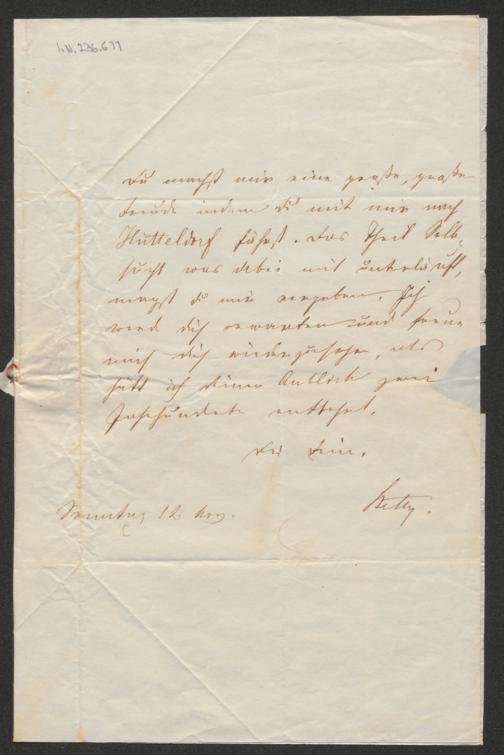 I.N. 236.677
Du machst mir eine große, große
Freude indem du mit mir nach
Hütteldorf fährst. Das Theil Selb-
sucht was dabei mit unterläuft,
magst du mir vergeben. Ich
werd dich erwarten und freue
mich dich wiederzusehen, als
hätt ich deinen Anblick zwei
Jahrhunderte entbehrt.
Die Deine.
Betty.
Sonntag 12 Nov.